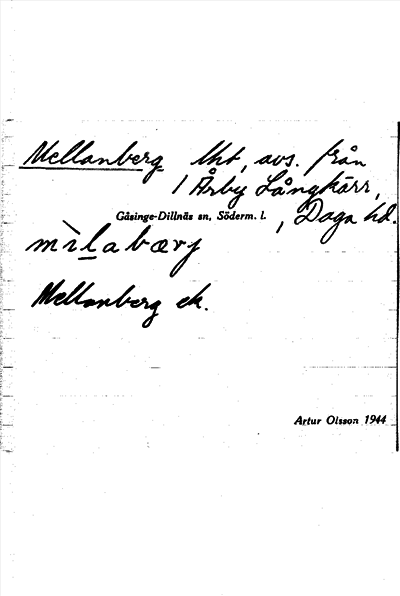 Mellanberg lht, avs. från
1 Årby Långkärr,
Gåsinge-Dillnäs sn, Söderm. l. , Daga hd.
mìlabærj
Mellanberg ek.
Artur Olsson 1944